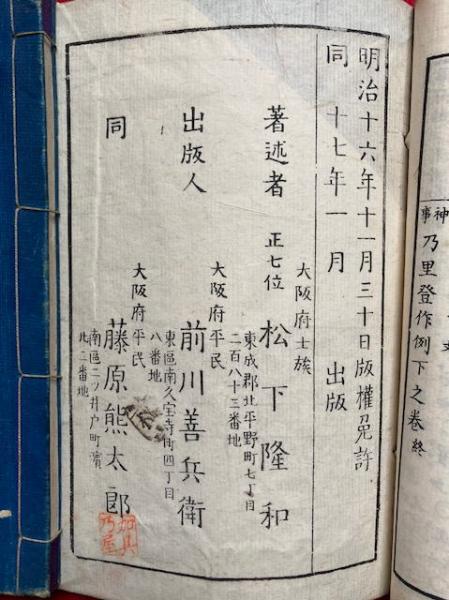 神事
乃里登作例下之巻終
明治十六年十一月三十日版權免許
同十七年一月出版
大阪府士族
著述者正七位松下隆和
東成郡北平野町七丁目
二百八十三番地
大阪府平民
出版人前川善兵衛
東區南久宝寺町四丁目
八番地
大阪府平民
同藤原熊太郎
南區二ツ井戸町濱
北二番地